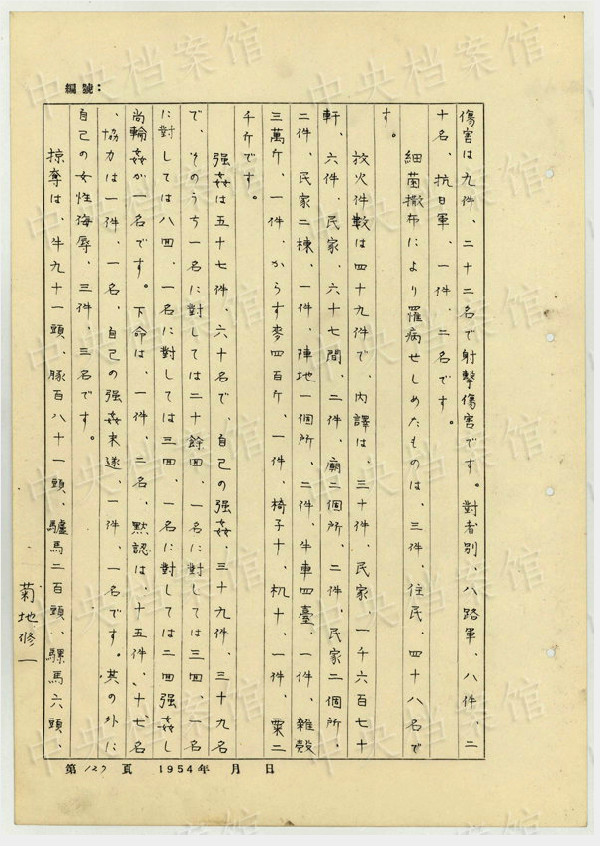 編號：
傷害は九件、二十二名で射擊傷害です。對者別、八路軍、八件、二
十名、抗日軍、一件、二名です。
細菌撒布により罹病せしめたものは、三件、住民、四十八名で
す。
放火件數は四十九件で、內譯は、三十件、民家、一千六百七十
軒、六件、民家、六十七間、二件、廟二個所、二件、民家二個所、
二件、民家二棟、一件、陣地一個所、二件、牛車四臺、一件、雜穀
三萬斤、一件、からす麥四百斤、一件、椅子十、机十、一件、粟二
千斤です。
强姦は五十七件、六十名で、自己の强姦、三十九件、三十九名
で、そのうち一名に對しては二十餘回、一名に對しては三回、一名
に對しては八回、一名に對しては三回、一名に對しては二回强姦し
尚輪姦が一名です。下命は、一件、二名、默認は、十五件、十七名
、協力は一件、一名、自己の强姦未遂、一件、一名です。其の外に
自己の女性侮辱、三件、三名です。
掠奪は、牛九十一頭、豚百八十一頭、驢馬二百頭、騾馬六頭、
菊地修一
第127頁 1954年 月 日
中央档案馆